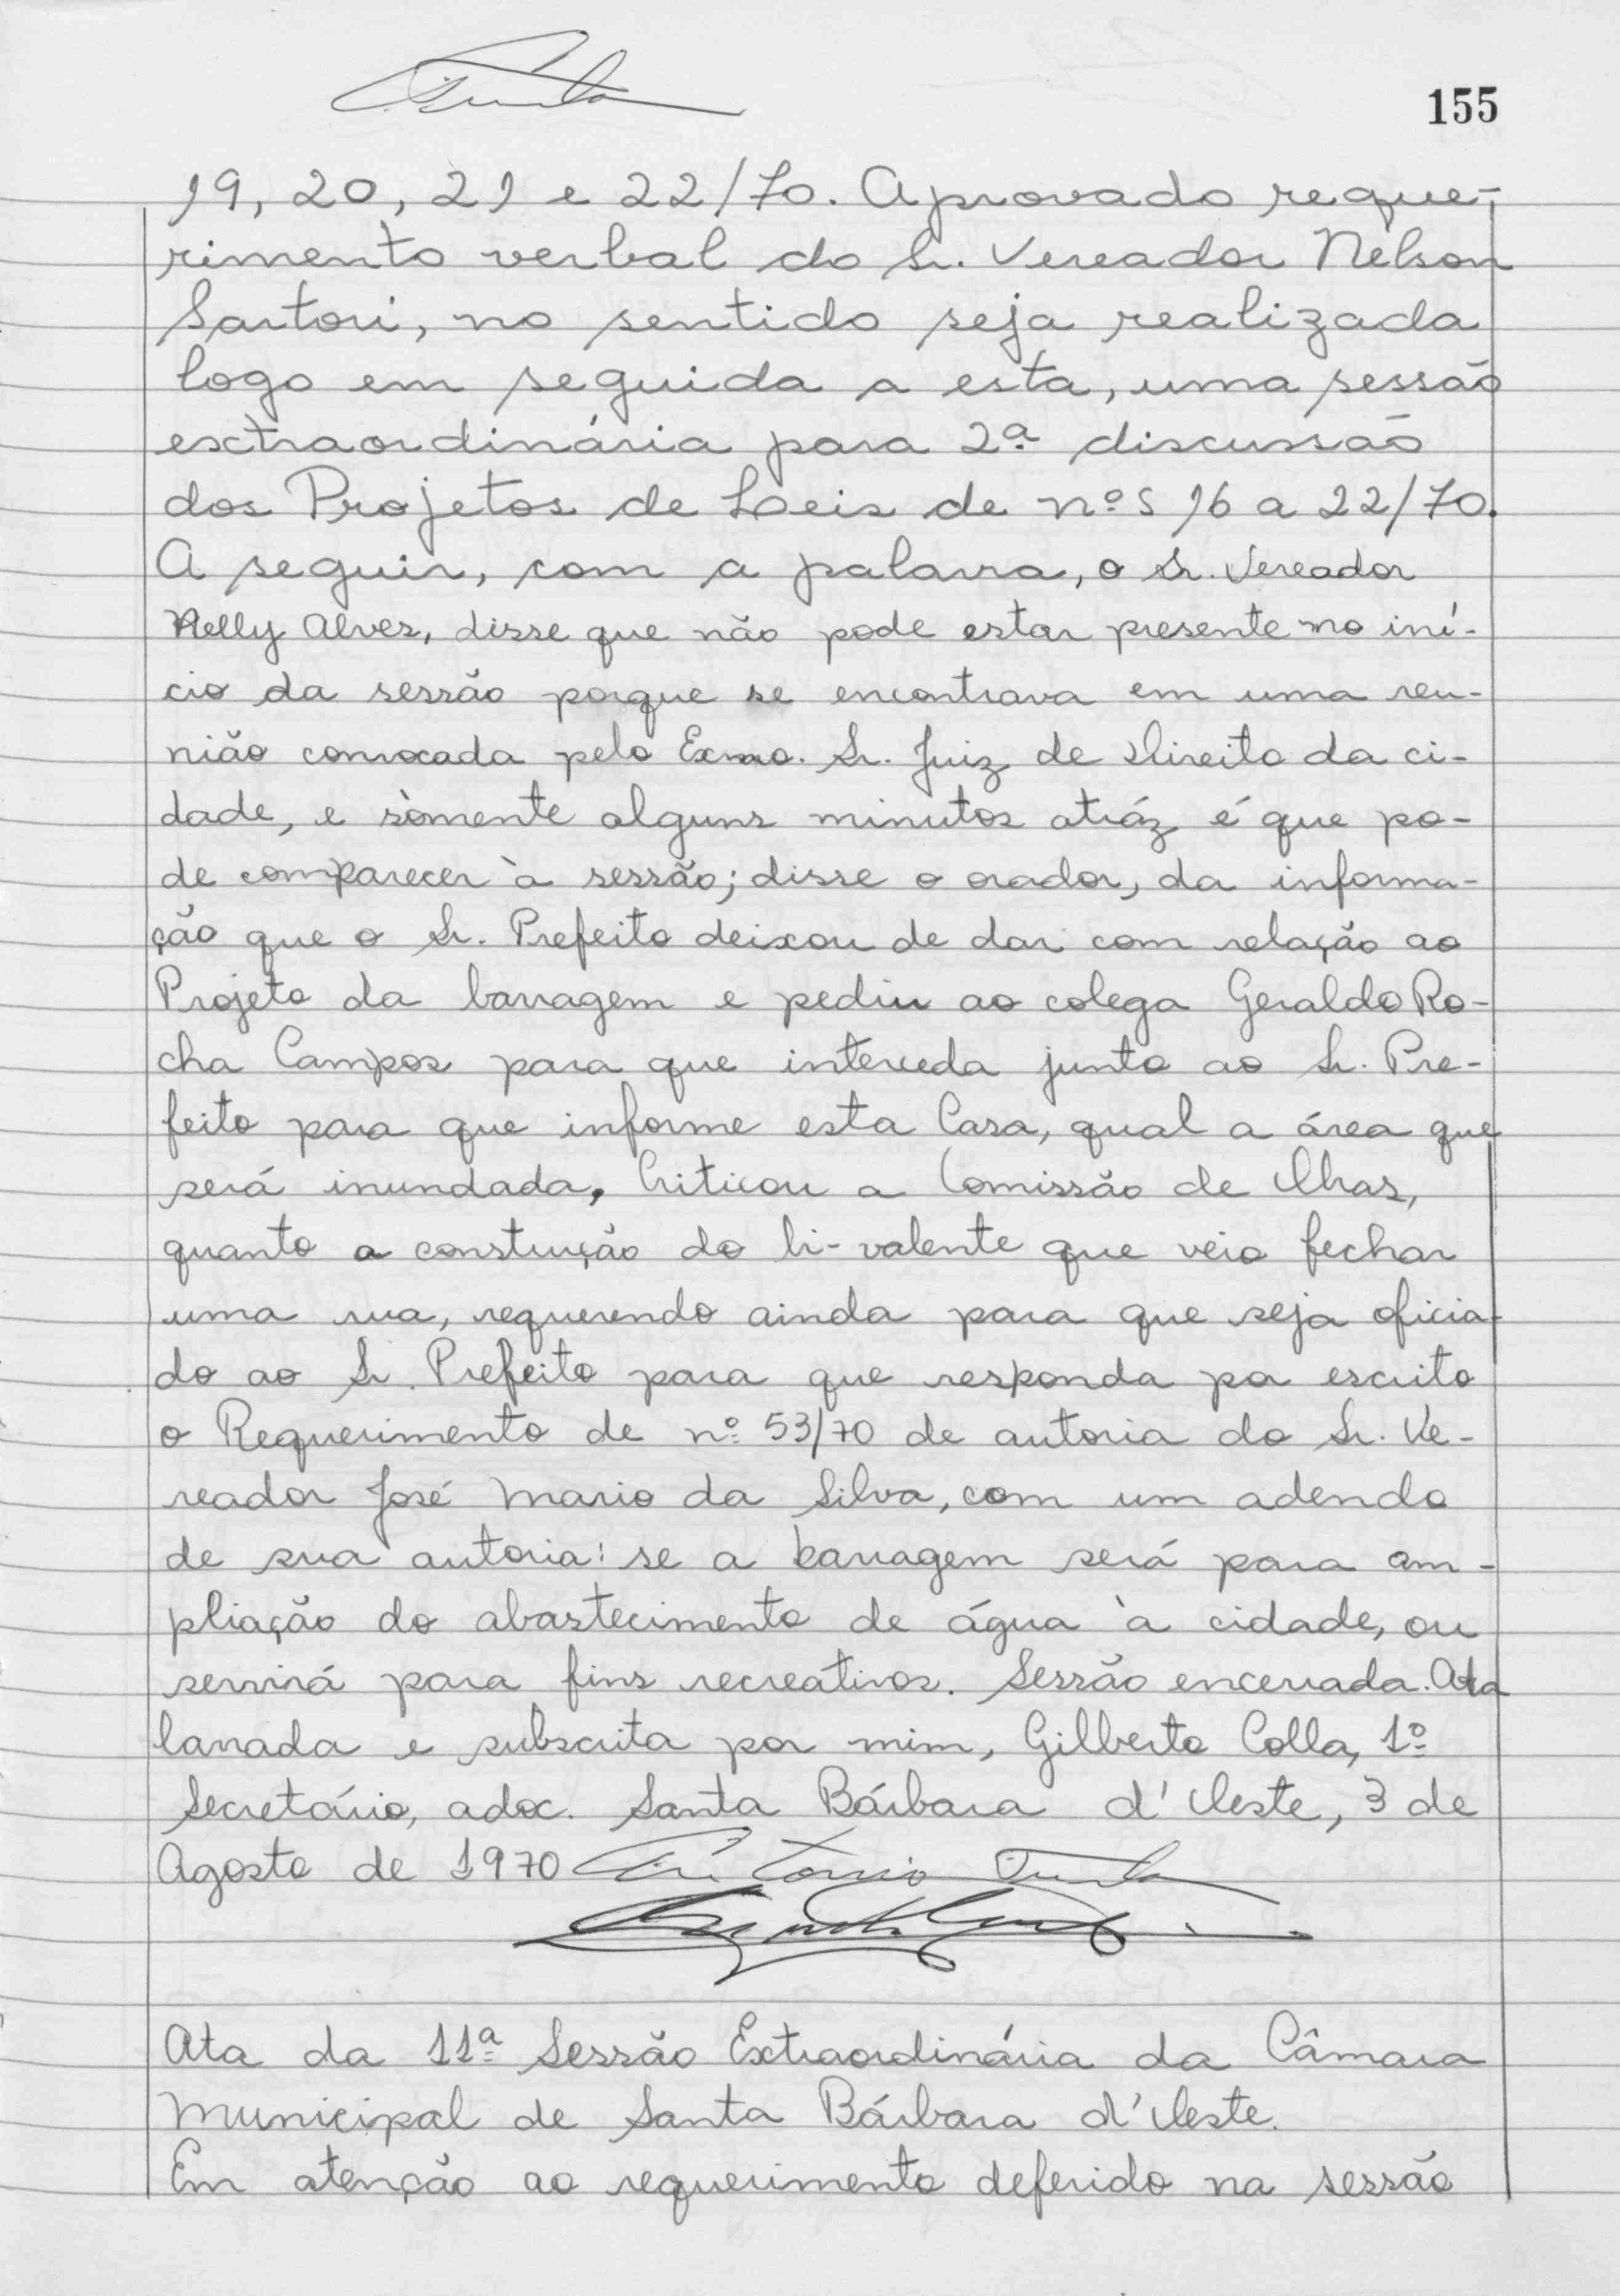 155
19, 20, 21 e 22/70. Aprovado reque-
rimento verbal do Sr. Vereador Nelson
Sartori, no sentido seja realizada
logo em seguida a esta, uma sessão
extraordinária para 2ª discussão
dos Projetos de Leis de nºs 16 a 22/70.
A seguir, com a palavra, o Sr. Vereador
Nelly Alves, disse que não pode estar presente no iní-
cio da sessão porque se encontrava em uma reu-
nião convocada pelo Exmo. Sr. Juiz de Direito da ci-
dade, e sòmente alguns minutos atráz é que po-
de comparecer à sessão; disse o orador, da informa-
ção que o Sr. Prefeito deixou de dar com relação ao
Projeto da barragem e pediu ao colega Geraldo Ro-
cha Campos para que interceda junto ao Sr. Pre-
feito para que informe esta Casa, qual a área que
será inundada, Criticou a Comissão de Obras,
quanto a construção do bi-valente que veio fechar
uma rua, requerendo ainda para que seja oficia-
do ao Sr. Prefeito para que responda por escrito
o Requerimento de nº 53/70 de autoria do Sr. Ve-
reador José Mario da Silva, com um adendo
de sua autoria: se a barragem será para am-
pliação do abastecimento de água à cidade, ou
servirá para fins recreativos. Sessão encerrada. Ata
lavrada e subscrita por mim, Gilberto Colla, 1º
Secretário, adoc. Santa Bárbara d'Oeste, 3 de
Agosto de 1970 Antonio
Ata da 11ª Sessão Extraordinária da Câmara
Municipal de Santa Bárbara d'Oeste.
Em atenção ao requerimento deferido na sessão